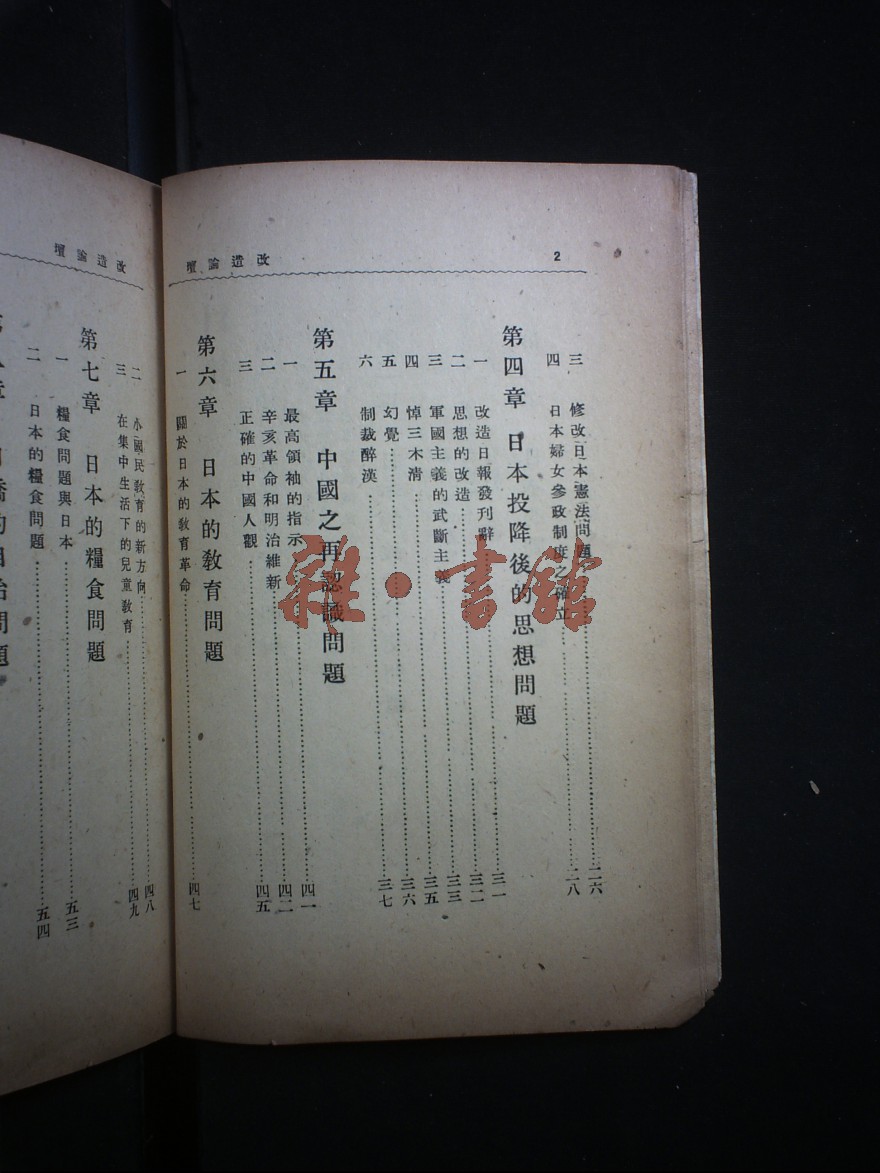 2
改造論壇
三 修改日本憲法問題 二六
四 日本婦女參政制度之確立 二八
第四章 日本投降後的思想問題
一 改造日報發刊辭 三一
二 思想的改造 三二
三 軍國主義的武斷主義 三三
四 悼三木清 三五
五 幻覺 三六
六 制裁醉漢 三七
第五章 中國之再認識問題
一 最高領袖的指示 四一
二 辛亥革命和明治維新 四二
三 正確的中國人觀 四五
第六章 日本的教育問題
一 關於日本的教育革命 四七
改造論壇
二 小國民教育的新方向 四八
三 在集中生活下的兒童教育 四九
第七章 日本的糧食問題
一 糧食問題與日本 五三
二 日本的糧食問題 五四
雜·書館